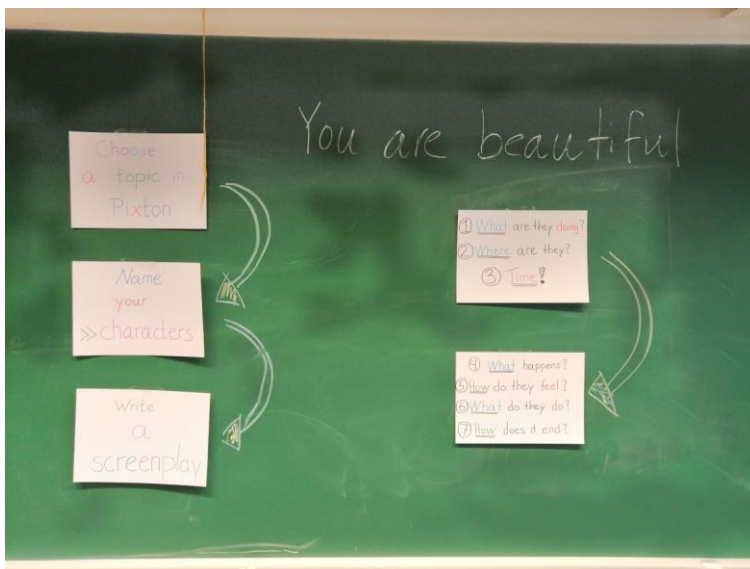 You are beautiful
Choose
a topic in
Pixton
Name
your
»characters
Write
a
screenplay
① What are they doing?
② Where are they?
③ Time!
④ What happens?
⑤ How do they feel?
⑥ What do they do?
⑦ How does it end?